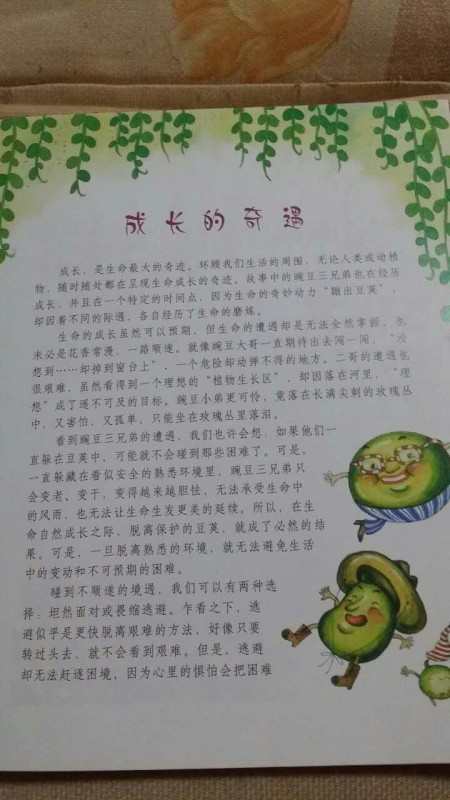 成长的奇遇
成长，是生命最大的奇迹。环顾我们生活的周围，无论人类或动植
物，随时随处都在呈现生命成长的奇迹。故事中的豌豆三兄弟也在经历
成长，并且在一个特定的时间点，因为生命的奇妙动力“蹦出豆荚”，
却因着不同的际遇，各自经历了生命的磨炼。
生命的成长虽然可以预期，但生命的遭遇却是无法全然掌握，也
未必是花香常漫，一路顺遂。就像豌豆大哥一直期待出去闯一闯，“没
想到……却掉到窗台上”，一个危险却动弹不得的地方。二哥的遭遇也
很艰难，虽然看得到一个理想的“植物生长区”，却因落在河里，“理
想”成了遥不可及的目标。豌豆小弟更可怜，竟落在长满尖刺的玫瑰丛
中，又害怕，又孤单，只能坐在玫瑰丛里落泪。
看到豌豆三兄弟的遭遇，我们也许会想：如果他们一
直躲在豆荚中，可能就不会碰到那些困难了。可是，
一直躲藏在看似安全的熟悉环境里，豌豆三兄弟只
会变老、变干，变得越来越胆怯，无法承受生命中
的风雨，也无法让生命生发更美的延续。所以，在生
命自然成长之际，脱离保护的豆荚，就成了必然的结
果。可是，一旦脱离熟悉的环境，就无法避免生活
中的变动和不可预期的困难。
碰到不顺遂的境遇，我们可以有两种选
择：坦然面对或畏缩逃避。乍看之下，逃
避似乎是更快脱离艰难的方法，好像只要
转过头去，就不会看到艰难。但是，逃避
却无法赶逐困境，因为心里的惧怕会把困难